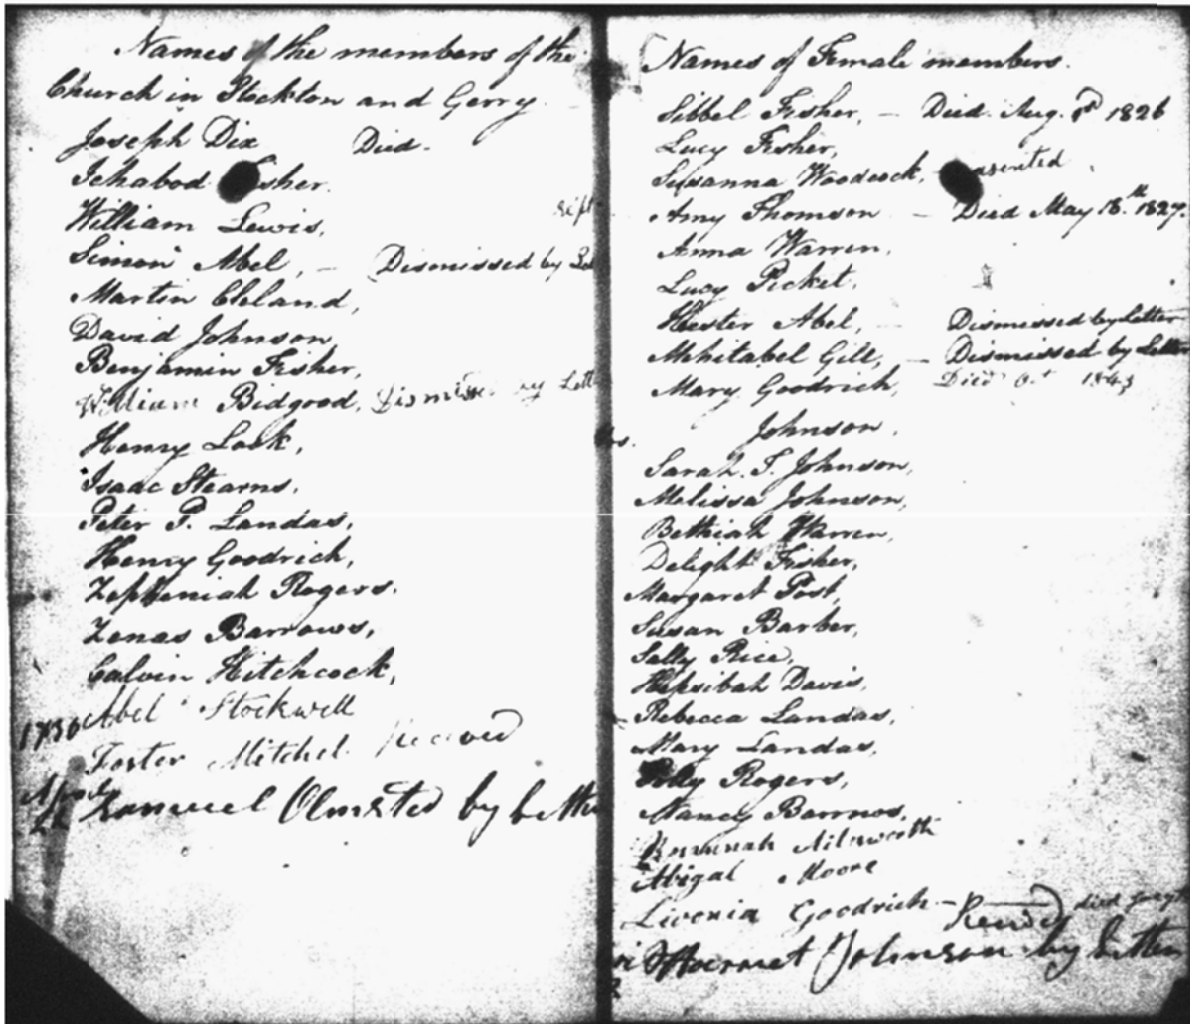 Names of the members of the
Church in Stockton and Gerry.
Joseph Dix Died.
Ichabod Fisher.
William Lewis,
Simon Abel, — Dismissed by
Martin Cleland,
David Johnson,
Benjamin Fisher,
William Bidgood, Dismissed by Lett
Henry Look,
Isaac Stearns,
Peter P. Landas,
Henry Goodrich,
Zepheniah Rogers.
Zenas Barrows,
Calvin Hitchcock,
Abel Stockwell
Foster Mitchel Received
Samuel Olmsted by lette
Names of Female members.
Sibbel Fisher, — Died. Aug. 1826
Lucy Fisher,
Susanna Woodcock,
Amy Thomson — Died May 18.th 1827.
Anna Warren,
Lucy Picket,
Hester Abel, — Dismissed by Letter
Mehitabel Gill, — Dismissed by Letter
Mary Goodrich, Died Oct 1843
Johnson,
Sarah. T. Johnson,
Melissa Johnson,
Bethiah Warren,
Delight Fisher,
Margaret Post,
Susan Barber,
Sally Rice,
Hepsibah Davis,
Rebecca Landas,
Mary Landas,
Polly Rogers,
Nancy Barrows,
Abigal Moore
Livonia Goodrich — died
Harriet Johnson by letter